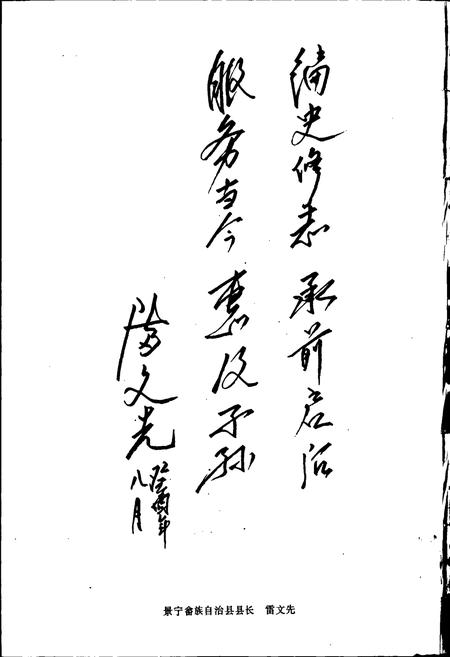 编史修志 承前启后
服务当今 惠及子孙
文先
年
八月
景宁畲族自治县县长 雷文先